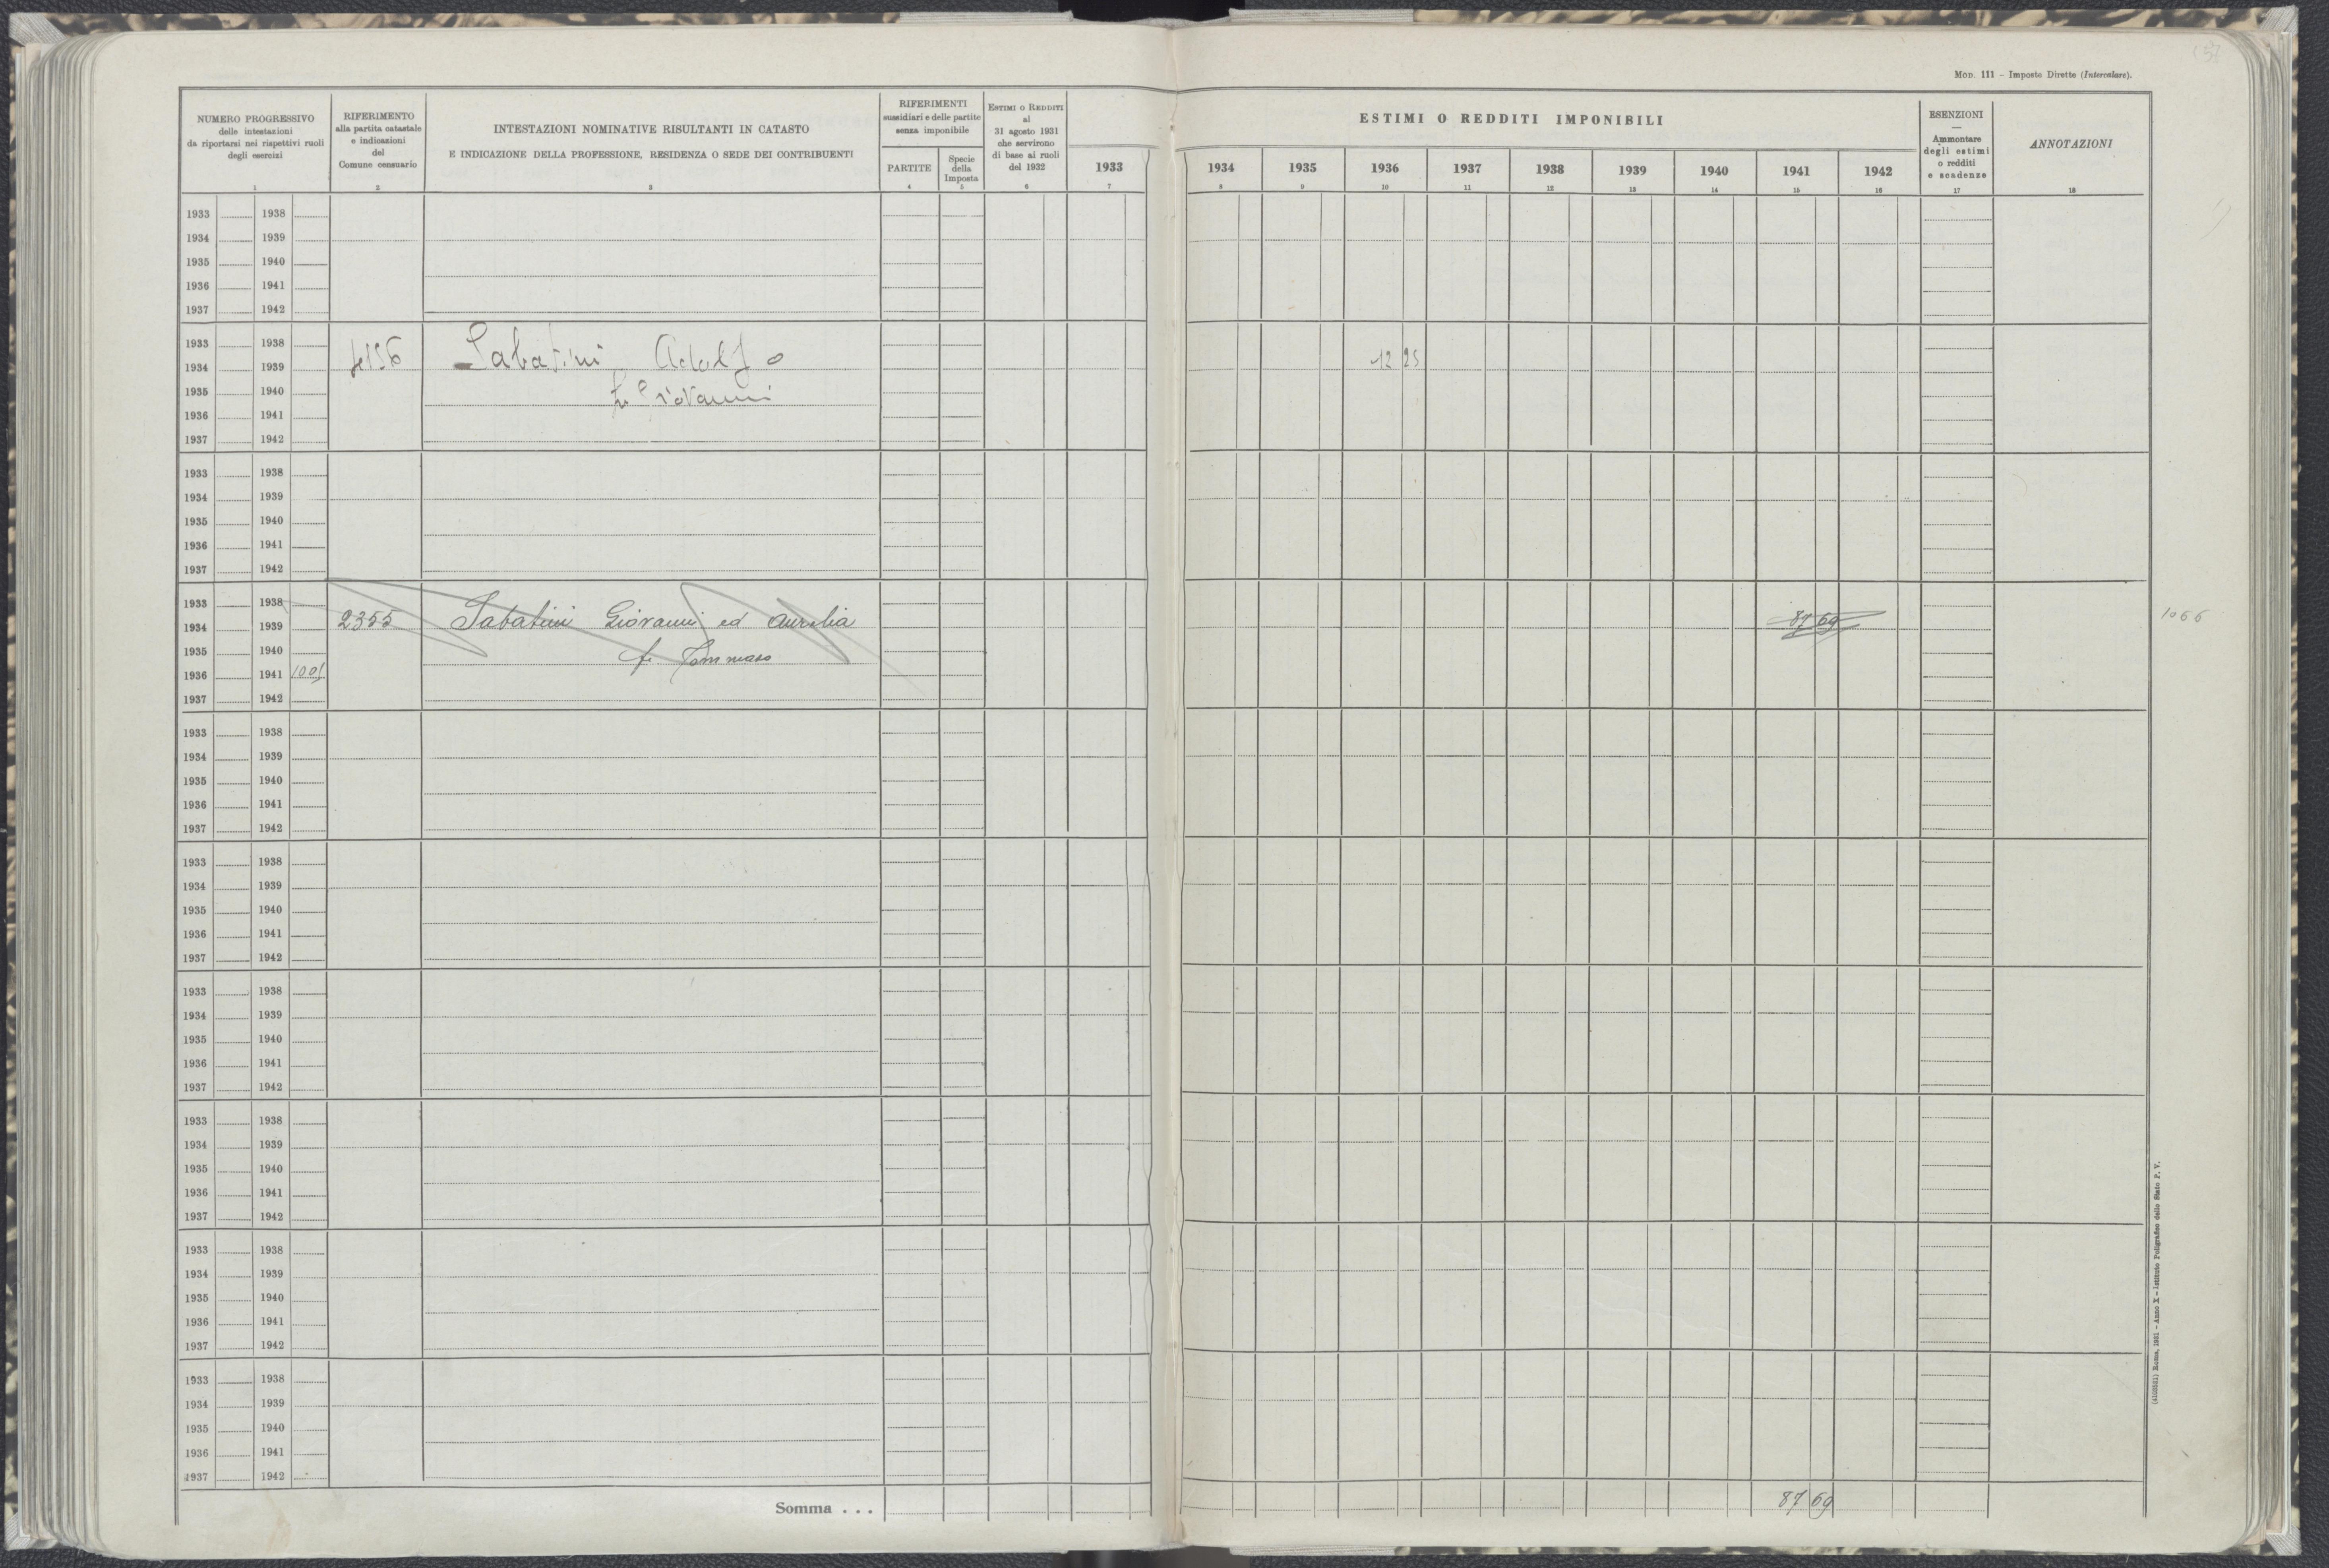 Mod. 111 – Imposte Dirette (Intercalare).
NUMERO PROGRESSIVO
delle intestazioni
da riportarsi nei rispettivi ruoli
degli esercizi
1
RIFERIMENTO
alla partita catastale
e indicazioni
del
Comune censuario
2
INTESTAZIONI NOMINATIVE RISULTANTI IN CATASTO
E INDICAZIONE DELLA PROFESSIONE, RESIDENZA O SEDE DEI CONTRIBUENTI
3
RIFERIMENTI
sussidiari e delle partite
senza imponibile
PARTITE
4
Specie
della
Imposta
5
Estimi o Redditi
al
31 agosto 1931
che servirono
di base ai ruoli
del 1932
6
1933
7
ESTIMI O REDDITI IMPONIBILI
1934 1935 1936 1937 1938 1939 1940 1941 1942
8 9 10 11 12 13 14 15 16
ESENZIONI
—
Ammontare
degli estimi
o redditi
e scadenze
17
ANNOTAZIONI
18
1933 1938
1934 1939
1935 1940
1936 1941
1937 1942
1933 1938
1934 1939 Sabatini Adolfo 12 25
1935 1940 fu Giovanni
1936 1941
1937 1942
1933 1938
1934 1939
1935 1940
1936 1941
1937 1942
1933 1938
1934 1939 2355 Sabatini Giovanni ed Aurelia 87 69 1066
1935 1940 fu Tommaso
1936 1941 1001
1937 1942
1933 1938
1934 1939
1935 1940
1936 1941
1937 1942
1933 1938
1934 1939
1935 1940
1936 1941
1937 1942
1933 1938
1934 1939
1935 1940
1936 1941
1937 1942
1933 1938
1934 1939
1935 1940
1936 1941
1937 1942
1933 1938
1934 1939
1935 1940
1936 1941
1937 1942
1933 1938
1934 1939
1935 1940
1936 1941
1937 1942
Somma . . . 87 69